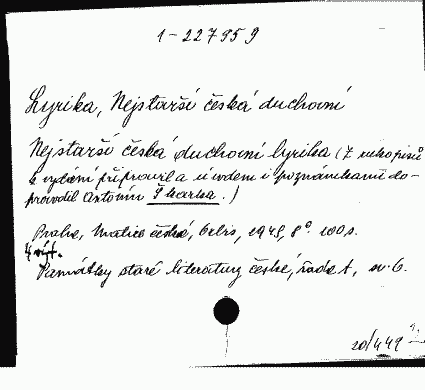 1-227959
Lyrika, Nejstarší česká duchovní
Nejstarší česká duchovní lyrika (Z rukopisů
k vydání připravil a úvodem i poznámkami do-
provodil Antonín Škarka.)
Praha, Matice česká, 1949, 8° 100 s.
Památky staré literatury české, řada 1, sv. 6.
20/449